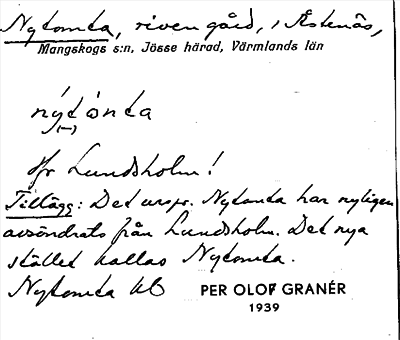 Nytomta, riven gård, i Ästenäs,
Mangskogs s:n, Jösse härad, Värmlands län
nýtòmta
(-)
Jfr Lundsholm!
Tillägg: Det urspr. Nytomta har nyligen
avsöndrats från Lundsholm. Det nya
stället kallas Nytomta.
Nytomta Ub PER OLOF GRANÉR
1939